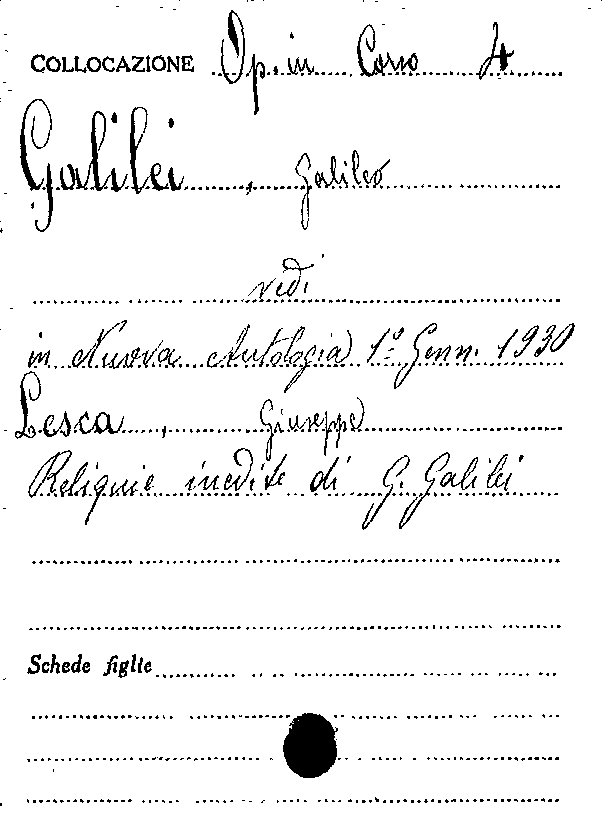 COLLOCAZIONE Op. in Corso 4
Galilei, Galileo
vedi
in Nuova Antologia 1º Genn. 1930
Lesca, Giuseppe
Reliquie inedite di G. Galilei
Schede figlie